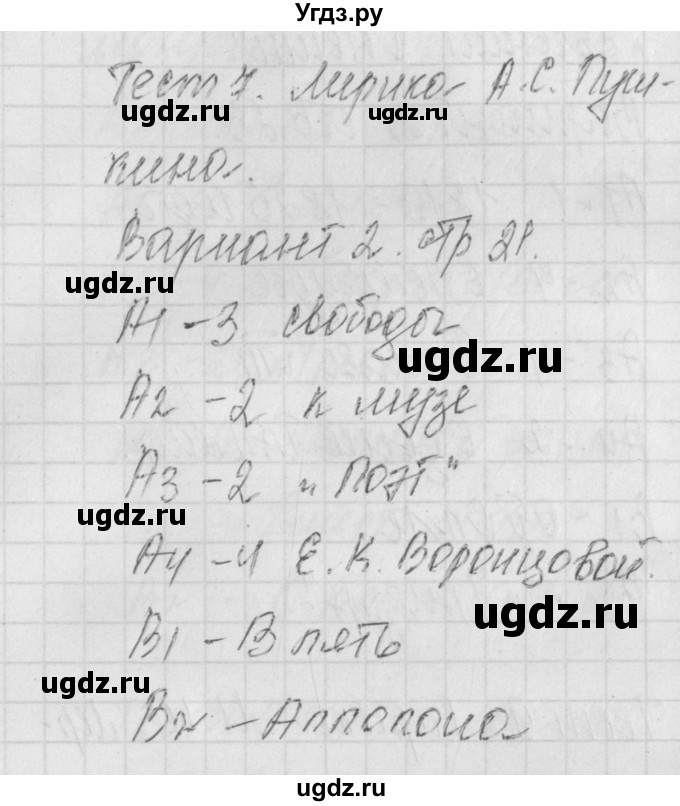 Угдз.ру
Тест 7. Лирика А.С. Пуш-
ugdz.ru ugdz.ru
кина.
Вариант 2. стр 21.
ugdz.ru
А1 - 3 свободы
ugdz.ru
А2 - 2 к музе
А3 - 2 "Поэт"
ugdz.ru
А4 - 4 Е.К. Воронцовой.
ugdz.ru
В1 - В пять
ugdz.ru
В2 - Апполона
ugdz.ru